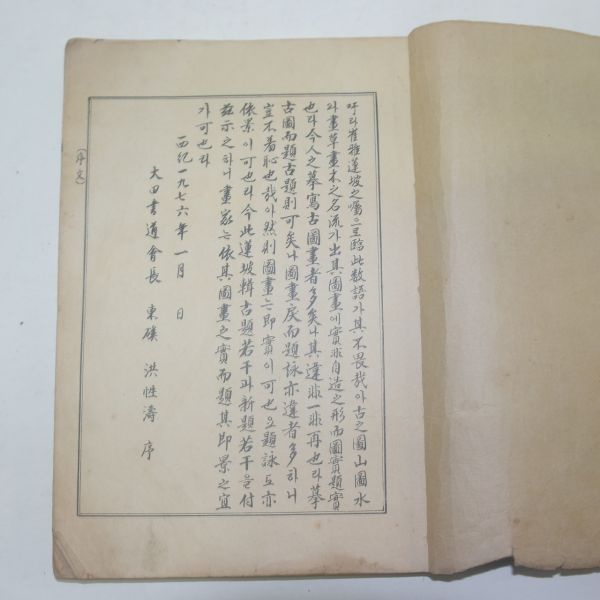 吁라 崔雅蓮坡之囑으로 臨此数語가 其不畏哉아 古之圖山圖水
와 畫草畫木之名流가 出其圖畫에 實非自造之形而圖實題實
也라 今人之摹寫古圖畫者多矣나 其違非一非再也라 摹
古圖而題古題則可矣나 圖畫戾而題詠亦違者多하니
豈不羞恥也哉아 然則圖畫는 即實이 可也오 題詠도 亦
依景이 可也라 今此蓮坡輯古題若干과 新題若干을 付
玆示之하니 畫家는 依其圖畫之實而題其即景之宜
가 可也라
西紀一九七六年一月 日
大田書道會長 東礎 洪性濤 序
(序文)